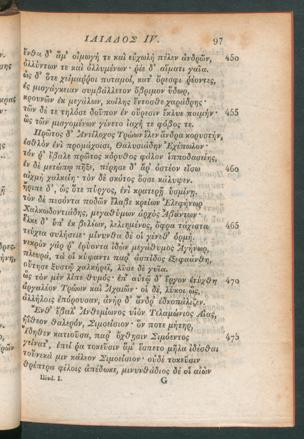 ΙΛΙΑΔΟΣ IV. 97
ἔνθα δ' ἅμ' οἰμωγή τε καὶ εὐχωλὴ πέλεν ἀνδρῶν, 450
ὀλλύντων τε καὶ ὀλλυμένων· ῥέε δ' αἵματι γαῖα.
ὡς δ' ὅτε χείμαρροι ποταμοί, κατ' ὄρεσφι ῥέοντες,
ἐς μισγάγκειαν συμβάλλετον ὄβριμον ὕδωρ,
κρουνῶν ἐκ μεγάλων, κοίλης ἔντοσθε χαράδρης·
τῶν δέ τε τηλόσε δοῦπον ἐν οὔρεσιν ἔκλυε ποιμήν· 455
ὣς τῶν μισγομένων γένετο ἰαχή τε φόβος τε.
Πρῶτος δ' Ἀντίλοχος Τρώων ἕλεν ἄνδρα κορυστήν,
ἐσθλὸν ἐνὶ προμάχοισι, Θαλυσιάδην Ἐχέπωλον·
τόν ῥ' ἔβαλε πρῶτος κόρυθος φάλον ἱπποδασείης,
ἐν δὲ μετώπῳ πῆξε, πέρησε δ' ἄρ' ὀστέον εἴσω 460
αἰχμὴ χαλκείη· τὸν δὲ σκότος ὄσσε κάλυψεν.
ἤριπε δ', ὡς ὅτε πύργος, ἐνὶ κρατερῇ ὑσμίνῃ.
τὸν δὲ πεσόντα ποδῶν ἔλαβε κρείων Ἐλεφήνωρ
Χαλκωδοντιάδης, μεγαθύμων ἀρχὸς Ἀβάντων·
ἕλκε δ' ὑπ' ἐκ βελέων, λελιημένος, ὄφρα τάχιστα 465
τεύχεα συλήσειε· μίνυνθα δέ οἱ γένεθ' ὁρμή.
νεκρὸν γάρ ῥ' ἐρύοντα ἰδὼν μεγάθυμος Ἀγήνωρ,
πλευρά, τά οἱ κύψαντι παρ' ἀσπίδος ἐξεφαάνθη,
οὔτησε ξυστῷ χαλκήρεϊ, λῦσε δὲ γυῖα.
ὣς τὸν μὲν λίπε θυμός· ἐπ' αὐτῷ δ' ἔργον ἐτύχθη 470
ἀργαλέον Τρώων καὶ Ἀχαιῶν· οἱ δέ, λύκοι ὥς,
ἀλλήλοις ἐπόρουσαν, ἀνὴρ δ' ἄνδρ' ἐδνοπάλιζεν.
Ἔνθ' ἔβαλ' Ἀνθεμίωνος υἱὸν Τελαμώνιος Αἴας,
ἠΐθεον θαλερόν, Σιμοείσιον· ὅν ποτε μήτηρ,
Ἴδηθεν κατιοῦσα, παρ' ὄχθῃσιν Σιμόεντος 475
γείνατ', ἐπεί ῥα τοκεῦσιν ἅμ' ἕσπετο μῆλα ἰδέσθαι
τοὔνεκά μιν κάλεον Σιμοείσιον· οὐδὲ τοκεῦσιν
θρέπτρα φίλοις ἀπέδωκε, μινυνθάδιος δέ οἱ αἰὼν
Iliad. I. G